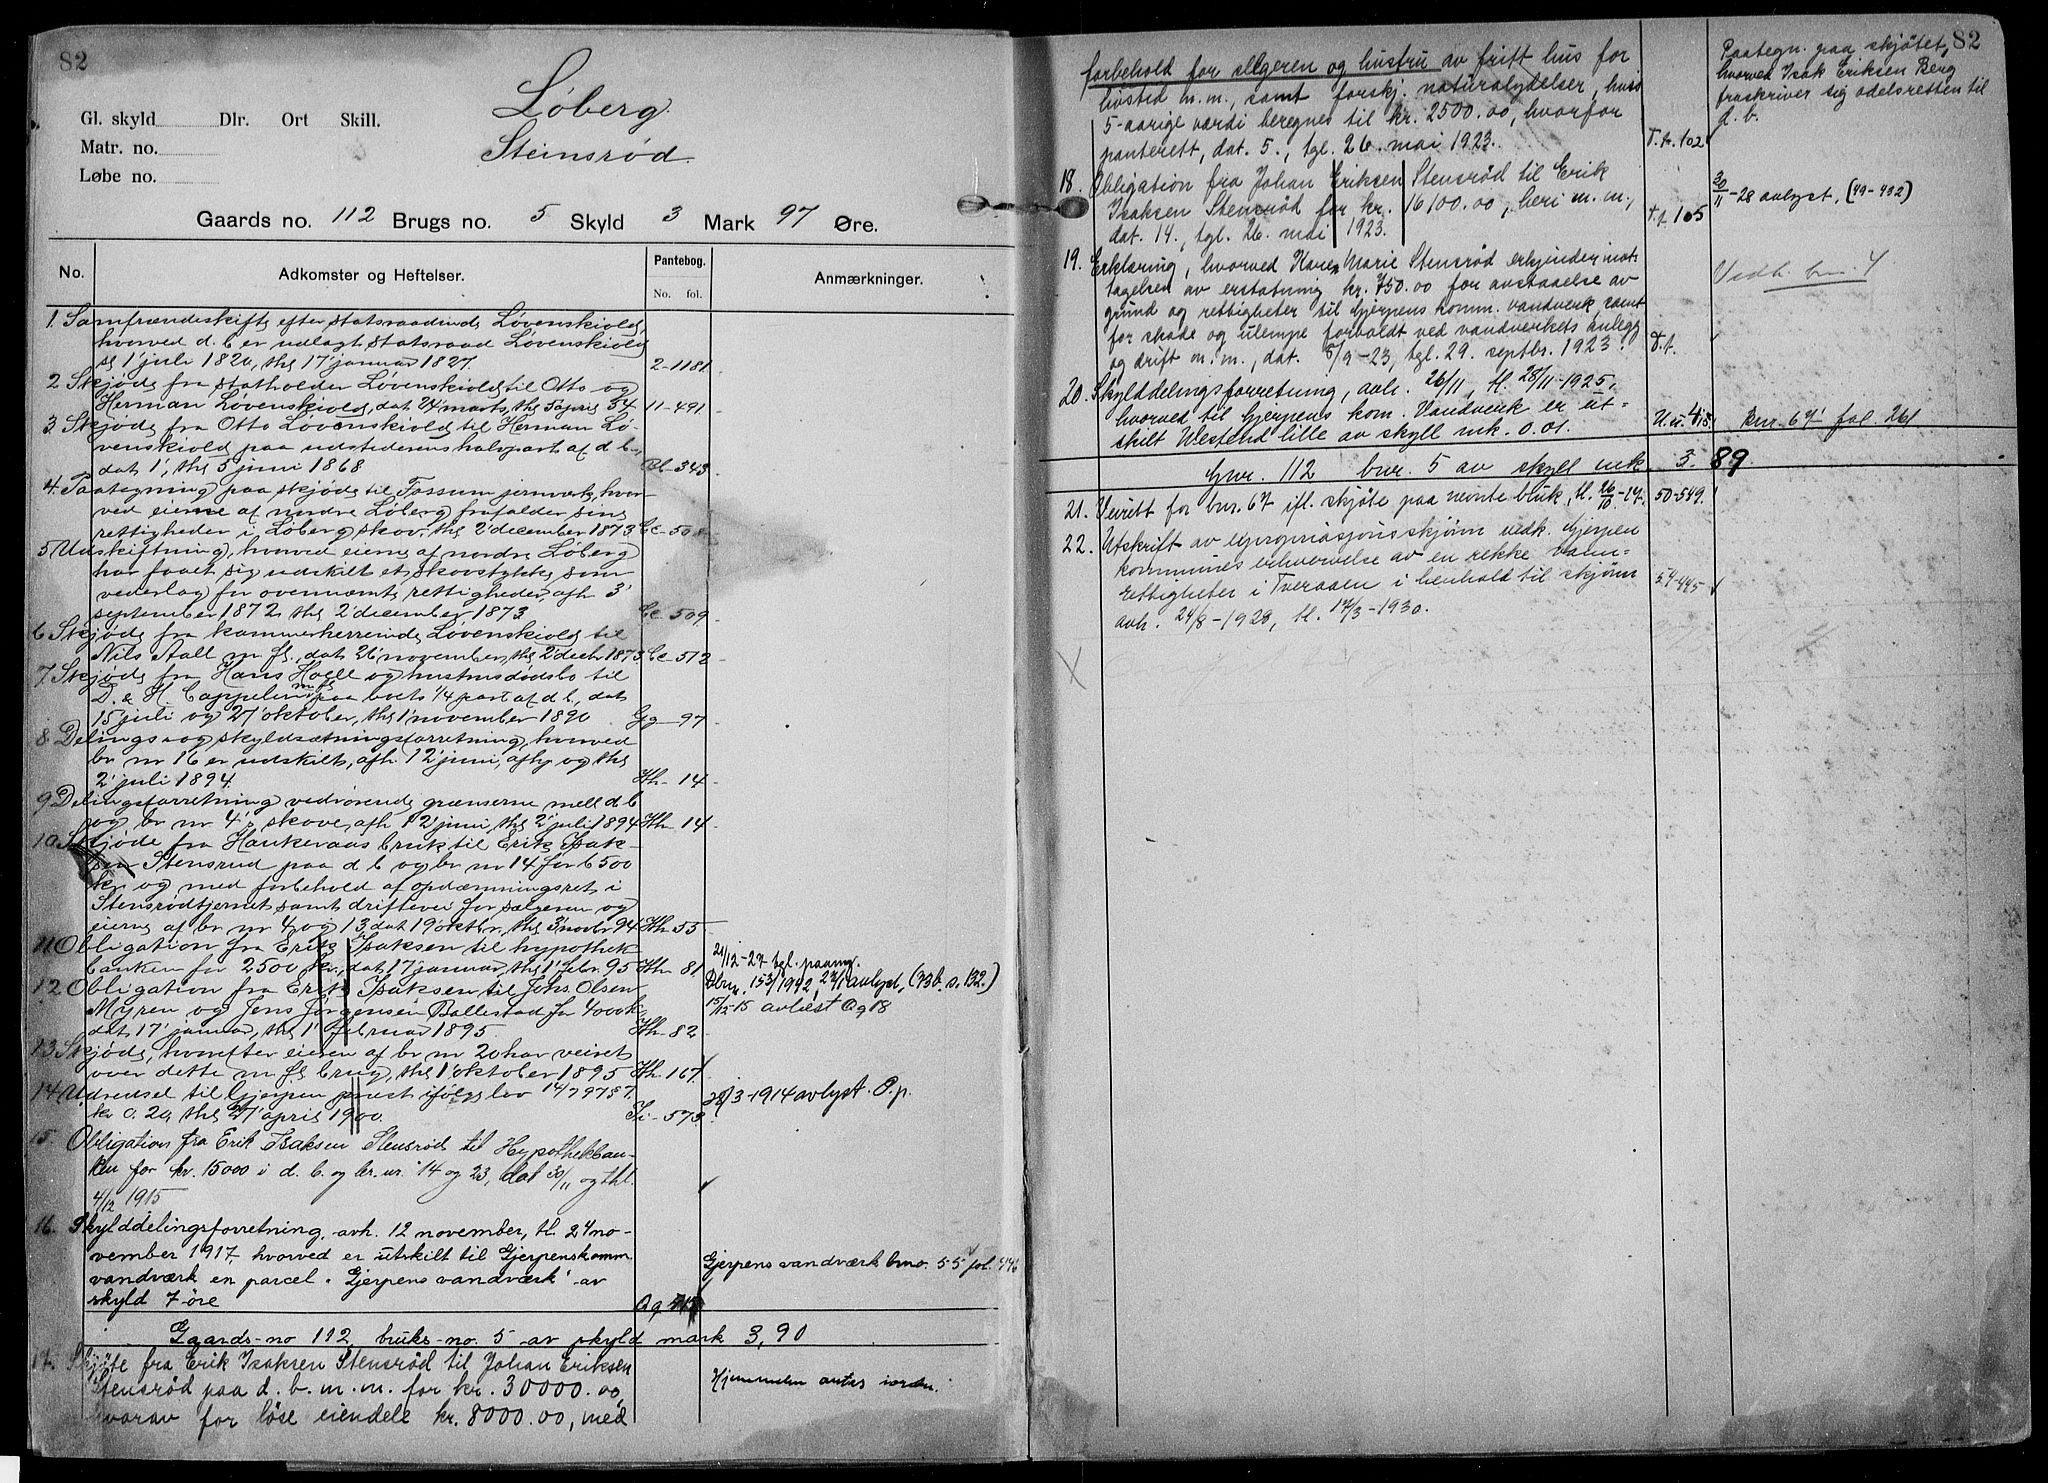 82
Løberg.
Steinsrød.
Gl. skyld Dlr. Ort Skill.
Matr. no.
Løbe no.
Gaards no. 112 Brugs no. 5 Skyld 3 Mark 97 Øre.
No. Adkomster og Heftelser. Pantebog. No. fol. Anmærkninger.
1. Samfrændeskifte efter statsraadinde Løvenskiold,
hvorved d. b er udlagt statsraad Løvenskiold
1' juli 1820, thl 17' januar 1827. 2-1181
2 Skjøde fra statholder Løvenskiold til Otto og
Herman Løvenskiold, dat 24' marts, thl 5 april 34 11-491
3. Skjøde fra Otto Løvenskiold til Herman Lø-
venskiold paa udstederens halvpart af d b.,
dat 1', thl 5 juni 1868 343
4. Paategning paa skjøde til Fossum jernverk, hvor-
ved eierne af nordre Løberg frafalder sine
rettigheder i Løberg skov, thl 2' december 1873 Cc-508
5 Udskiftning, hvorved eierne af nordre Løberg
har faaet sig udskilt et skovstykke, som
vederlag for ovennævnte rettigheder, afh 3'
september 1872, thl 2' december 1873. Cc-509.
6 Skjøde fra kammerherreinde Løvenskiold til
Nils Aall m fl., dat 26' november, thl 2' decbr 1873 Cc-512
7. Skjøde fra Hans Hoell og hustrus dødsbo til
D. & H. Cappelen m fl paa boets 1/4 part af d b, dat
15 juli og 27' oktober, thl 1' november 1890 Gg-97
8 Delings- og skyldsætningsforretning, hvorved
br nr 16 er udskilt, afh 12' juni, afhj og thl
2' juli 1894. Hh-14
9 Delingsforretning vedrørende grænserne mell d b
og br nr 4's skove, afh 12' juni, thl 2' juli 1894 Hh-14
10. Skjøde fra Hankevaas bruk til Erik Isak-
sen Stensrud paa d b og br nr 14 for 6500
kr og med forbehold af opdæmningsret i
Stensrødtjernet samt driftevei for sælgeren og
eierne af br nr 4 og 13, dat 19' oktbr, thl 3' novbr 94 Hh-55
11 Obligation fra Erik Isaksen til hypothek-
banken for 2500 kr., dat 17' januar, thl 1' febr. 95 Hh-81 21/12-27 tgl. paany.
Dbnr. 153/1942, 27/1 avlyst, (73b. s. 132.)
12 Obligation fra Erik Isaksen til Johs. Olsen
Myren og Jens Jørgensen Ballestad for 4000 k 15/12-15 avlæst Qq 18
dat 17' januar, thl 1' februar 1895. Hh-82
13. Skjøde, hvorefter eieren af br nr 20 har veiret
over dette m fl brug, thl 1' oktober 1895 Hh-167.
14 Udredsel til Gjerpen prest ifølge lov 14/7 97 § 7.
kr 0.20, thl 27' april 1900. Ii-573. 28/3-1914 avlyst. O.p.
15. Obligation fra Erik Isaksen Stensrød til Hypothekban-
ken for kr. 15000 i d. b. og br. nr. 14 og 23, dat 30/11 og thl.
4/12 1915
16. Skylddelingsforretning, avh. 12 november, tl. 24 no-
vember 1917, hvorved er utskilt til Gjerpens komm.
vandværk en parcel "Gjerpens vandværk" av Gjerpens vandværk brno. 55 fol.
skyld 7 øre Qq
Gaards-no 112 bruks-no. 5 av skyld mark 3,90
17. Skjøte fra Erik Isaksen Stensrød til Johan Eriksen
Stensrød paa d. b. m. m. for kr. 30000.00, Hjemmelen antas iorden.
hvorav for løse eiendele kr. 8000.00, med
82
forbehold for selgeren og hustru av fritt hus for
husted m.m., samt forskj. naturalydelser, hvis
5-aarige værdi beregnes til kr. 2500.00, hvorfor
panterett, dat. 5., tgl. 26. mai 1923. T.t. 102
Paategn. paa skjøtet,
hvorved Isak Eriksen Berg
fraskriver sig odelsretten til
d. b.
18. Obligation fra Johan Eriksen Stensrød til Erik
Isaksen Stensrød for kr. 16100.00, heri m. m.,
dat. 14., tgl. 26. mai 1923. T.t. 105 30/11-28 avlyst, (49-432)
19. Erklæring, hvorved Karen Marie Stensrød erkjender mot-
tagelsen av erstatning kr. 750.00 for avstaaelse av Vedk. bnr. 4
grund og rettigheter til Gjerpens komm. vandverk, samt
for skade og ulempe forvoldt ved vandverkets anlegg
og drift m. m., dat. 5/9-23, tgl. 29. septbr. 1923. T.t.
20. Skylddelingsforretning, avh. 26/11, tl. 28/11-1925,
hvorved til Gjerpens kom. Vandverk er ut-
skilt Westend lille av skyll mk. 0.01. U.u. 415. Bnr. 67 fol. 261
Gnr. 112 bnr. 5 av skyll mk. 3.89.
21. Veirett for bnr. 67 ifl. skjøte paa nevnte bruk, tl. 26/10-17. 50-549.
22. Utskrift av expropriasjonsskjønn vedk. Gjerpen
kommunes erhvervelse av en rekke vann-
rettigheter i Tveraaen i henhold til skjønn 54-445
avh. 24/8-1928, tl. 17/3-1930.
X